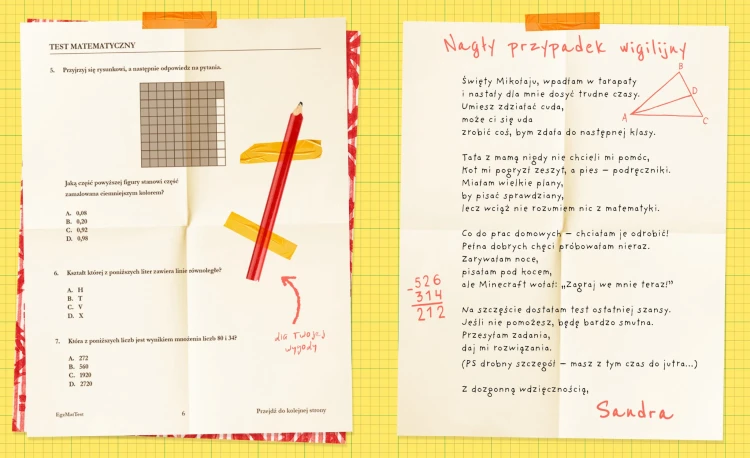 TEST MATEMATYCZNY
5. Przyjrzyj się rysunkowi, a następnie odpowiedz na pytania.
Jaką część powyższej figury stanowi część
zamalowana ciemniejszym kolorem?
A. 0,08
B. 0,20
C. 0,92
D. 0,98
6. Kształt której z poniższych liter zawiera linie równoległe?
A. H
B. T
C. V
D. X
7. Która z poniższych liczb jest wynikiem mnożenia liczb 80 i 34?
A. 272
B. 560
C. 1920
D. 2720
dla Twojej
wygody
EgzMatTest
6
Przejdź do kolejnej strony
Nagły przypadek wigilijny
A
B
D
C
Święty Mikołaju, wpadłam w tarapaty
i nastały dla mnie dosyć trudne czasy.
Umiesz zdziałać cuda,
może ci się uda
zrobić coś, bym zdała do następnej klasy.
Tata z mamą nigdy nie chcieli mi pomóc,
Kot mi pogryzł zeszyt, a pies – podręczniki.
Miałam wielkie plany,
by pisać sprawdziany,
lecz wciąż nie rozumiem nic z matematyki.
Co do prac domowych – chciałam je odrobić!
Pełna dobrych chęci próbowałam nieraz.
Zarywałam noce,
pisałam pod kocem,
ale Minecraft wołał: „Zagraj we mnie teraz!”
-526
314
212
Na szczęście dostałam test ostatniej szansy.
Jeśli nie pomożesz, będę bardzo smutna.
Przesyłam zadania,
daj mi rozwiązania.
(PS drobny szczegół – masz z tym czas do jutra...)
Z dozgonną wdzięcznością,
Sandra